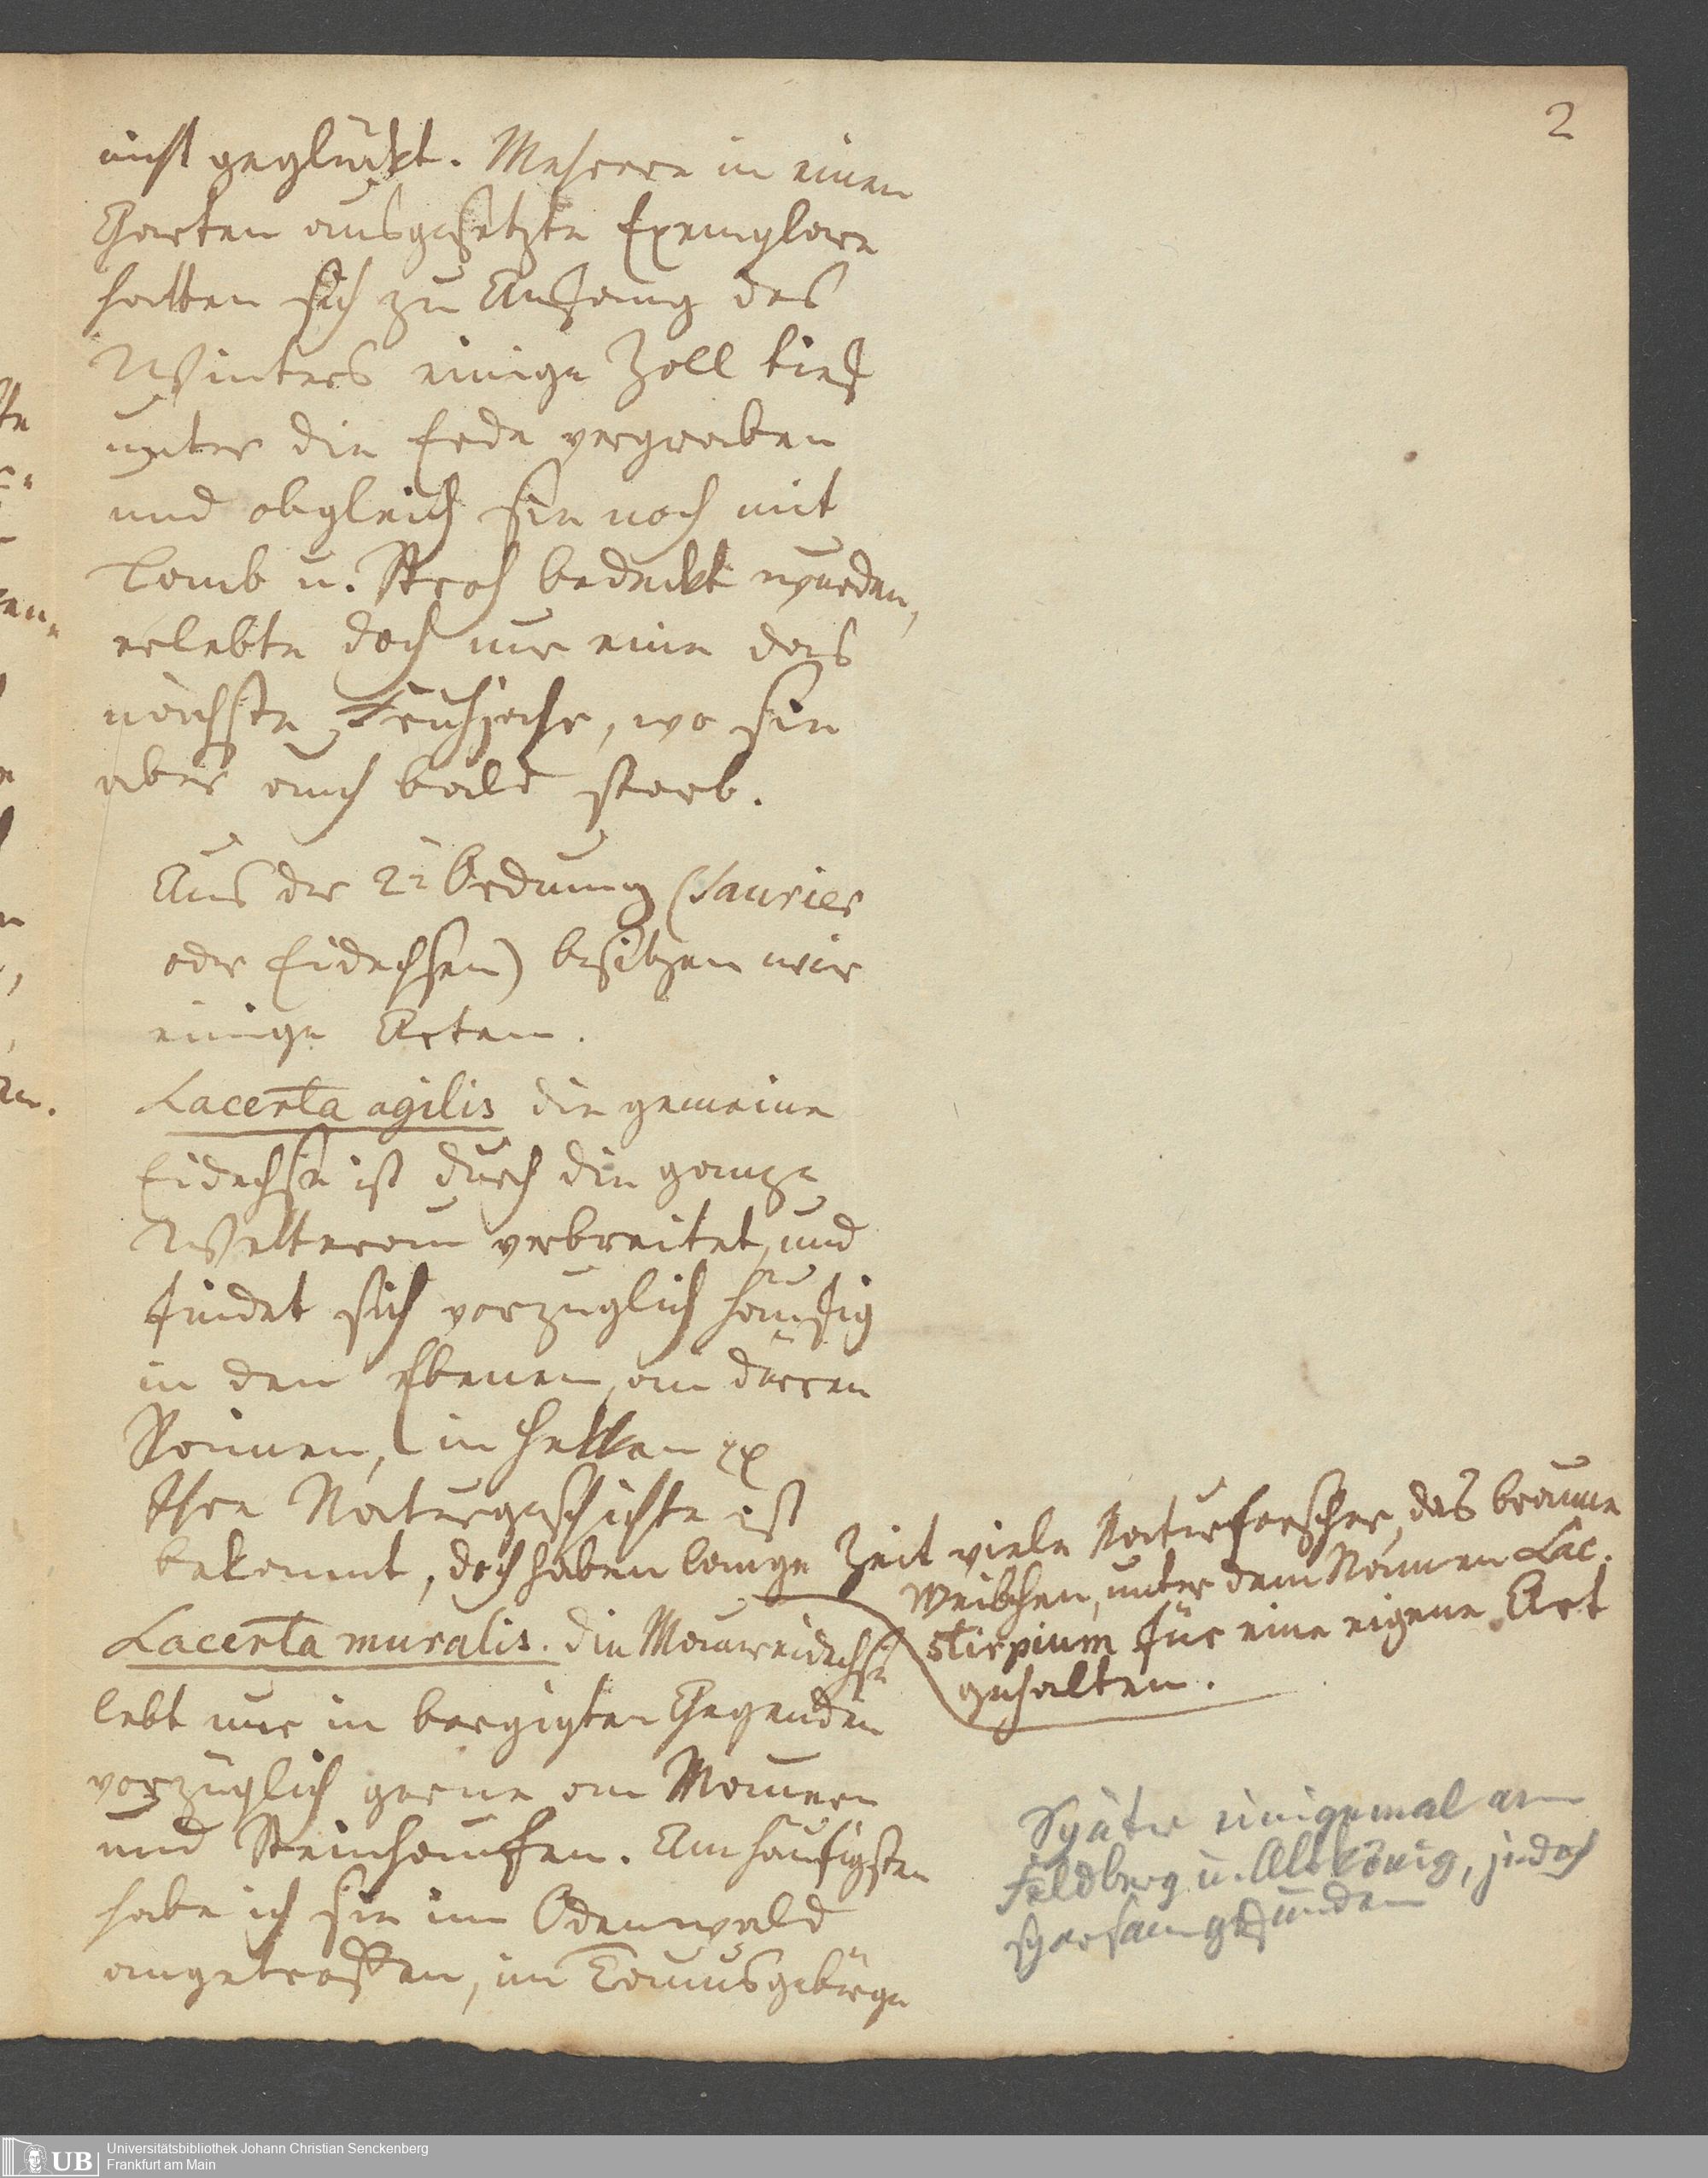 2
nicht geglückt. Mehrere in einen
Garten ausgesetzte Exemplare
hatten sich zu Anfang des
Winters einige Zoll tief
unter die Erde vergraben
und obgleich sie noch mit
Laub u. Stroh bedeckt wurden,
erlebte doch nur eine das
nächste Frühjahr, wo sie
aber auch bald starb.
Aus der 2n Ordnung (Saurier
oder Eidechsen) besitzen wir
einige Arten.
Lacerta agilis die gemeine
Eidechse ist durch die ganze
Wetterau verbreitet, und
findet sich vorzüglich häufig
in den Ebenen, an dürren
Rainen, in Hecken
Ihre Naturgeschichte ist
bekannt, doch haben lange Zeit viele Naturforscher, das braune
Weibchen, unter dem Namen Lac.
stirpium für eine eigene Art
gehalten.
Lacerta muralis. die Mauereidechse
lebt nur in bergigten Gegenden
vorzüglich gerne an Mauern
und Steinhaufen. Am häufigsten
habe ich sie im Odenwald
angetroffen, im Taunusgebirge
Später einigemal am
Feldberg u. Altkönig, jedoch
sparsam gefunden
UB
Universitätsbibliothek Johann Christian Senckenberg
Frankfurt am Main